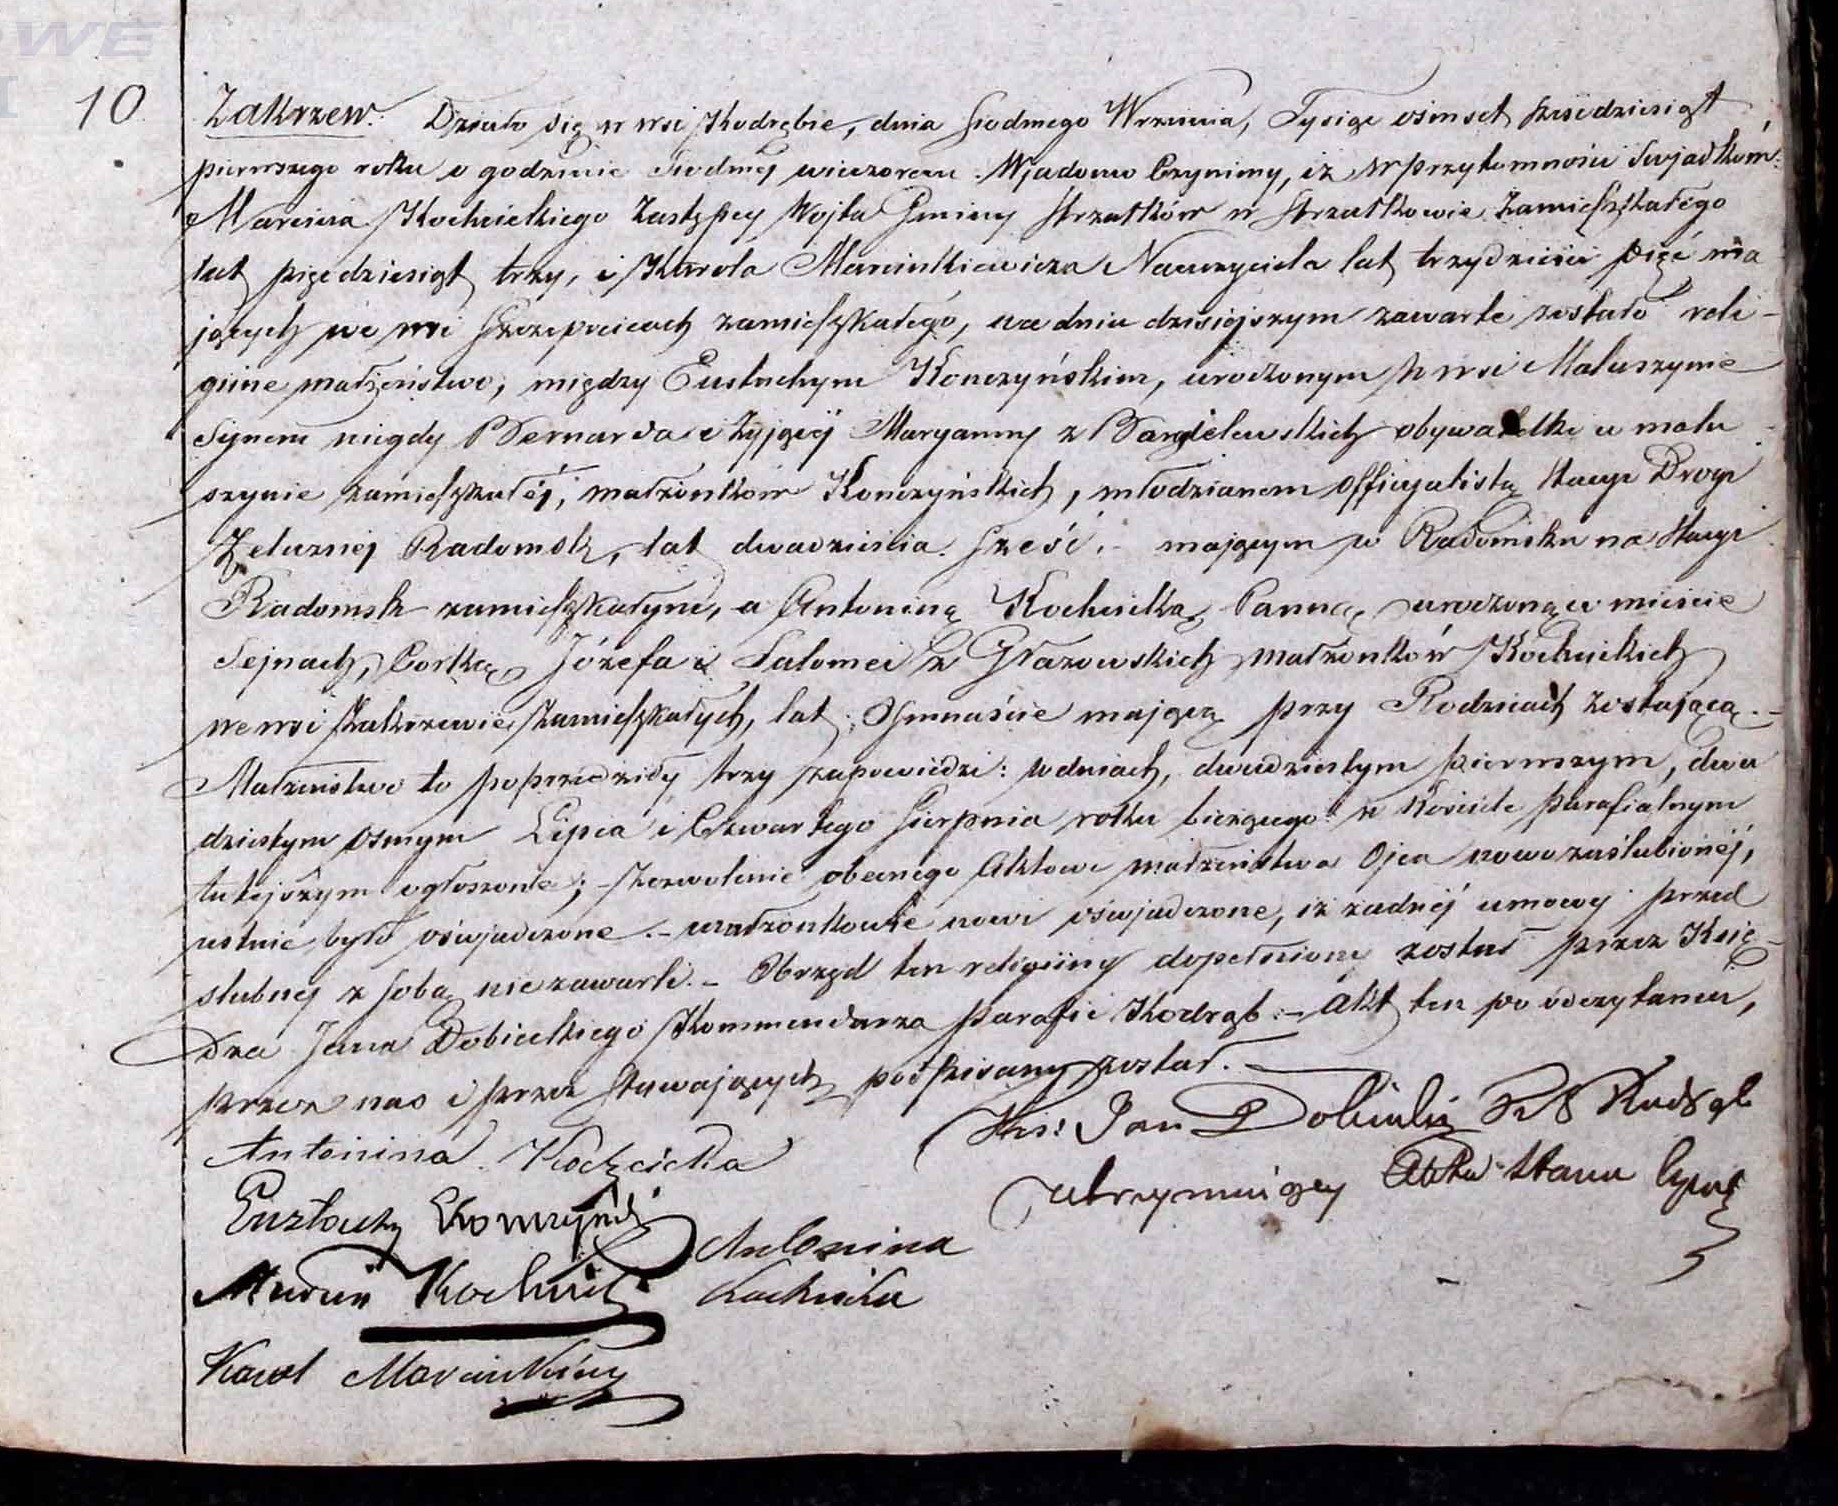 WE
10.
Zakrzew. Działo się w wsi Kodrębie, dnia siodmego Września, Tysiąc osimset sześćdziesiąt
pierwszego roku o godzinie siodméj wieczorem. Wjadomo Czynimy, iż w przytomności Swjadków
Marcina Kochcickiego Zastępcy Wojta Gminy Strzałków w Strzałkowie zamieszkałego
lat pięćdziesiąt trzy, i Karola Marcinkiewicza Nauczyciela lat trzydzieści pięć ma
jących we wsi zamieszkałego, wa dniu dzisiejszym zawarte zostało reli-
gijne małżeństwo, między Eustachym Konczyńskim, urodzonym w wsi Maluszynie
Synem niegdy Bernarda i żyjącéj Maryanny z obywatelki w malu
szynie zamieszkałéj, małżonków Konczyńskich, młodzianem officyalistą Stacyi Drogi
Żelaznéj Radomsk, lat dwadzieścia sześć. - mającym w Radomsku na Stacyi
Radomsk zamieszkałym, a Antoniną Kochcicką Panną, urodzoną w mieście
Sejnach, Corką Józefa i Salomei z Głazowskich małżonków Kochcickich
we wsi Zakrzewie zamieszkałych, lat Osmnaście mającą przy Rodzicach zostającą. -
Małżeństwo to poprzedziły trzy zapowiedzi: w dniach, dwudziestym pierwszym, dwu
dziestym osmym Lipca i Czwartego Sierpnia roku bieżącego w Kościele parafialnym
tutejszym ogłoszone; - zezwolenie obecnego Aktowi małżeństwa Ojca nowozaślubionéj,
ustnie było oświadczone. - małżonkowie nowi oświadczone, iż żadnéj umowy przed
slubnéj z sobą nie zawarli. - Obrzęd ten religijny dopełniony został przez Xię-
Dza Jana Dobieckiego Kommendarza parafii Kodrąb. - Akt ten po odczytaniu,
przez nas i przez stawających podpisany został. -
Ks: Jan Dobiecki Kodrąb
utrzymujący Akta Stanu Cywil
Antonina Kochcicka
Eustachy Konczyński
Antonina
Kochcicka
Marcin Kochcicki
Karol Marcinkiewicz